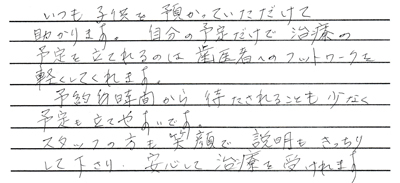 いつも子供を預かっていただけて
助かります。自分の予定だけで治療の
予定を立てれるのは歯医者へのフットワークを
軽くしてくれます。
予約の時間から待たされることも少なく
予定も立てやすいです。
スタッフの方も笑顔で説明もきっちり
して下さり、安心して治療を受けれます